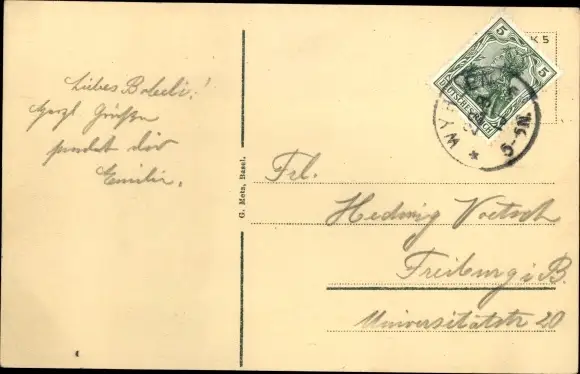 Liebes Bobeli!
Herzl. Grüße
sendet dir
Emilie.
G. Metz, Basel.
K 5
5
5
DEUTSCHES REICH
WYHLEN
5-6N.
Frl.
Hedwig Voetsch
Freiburg i B.
Universitätstr 20